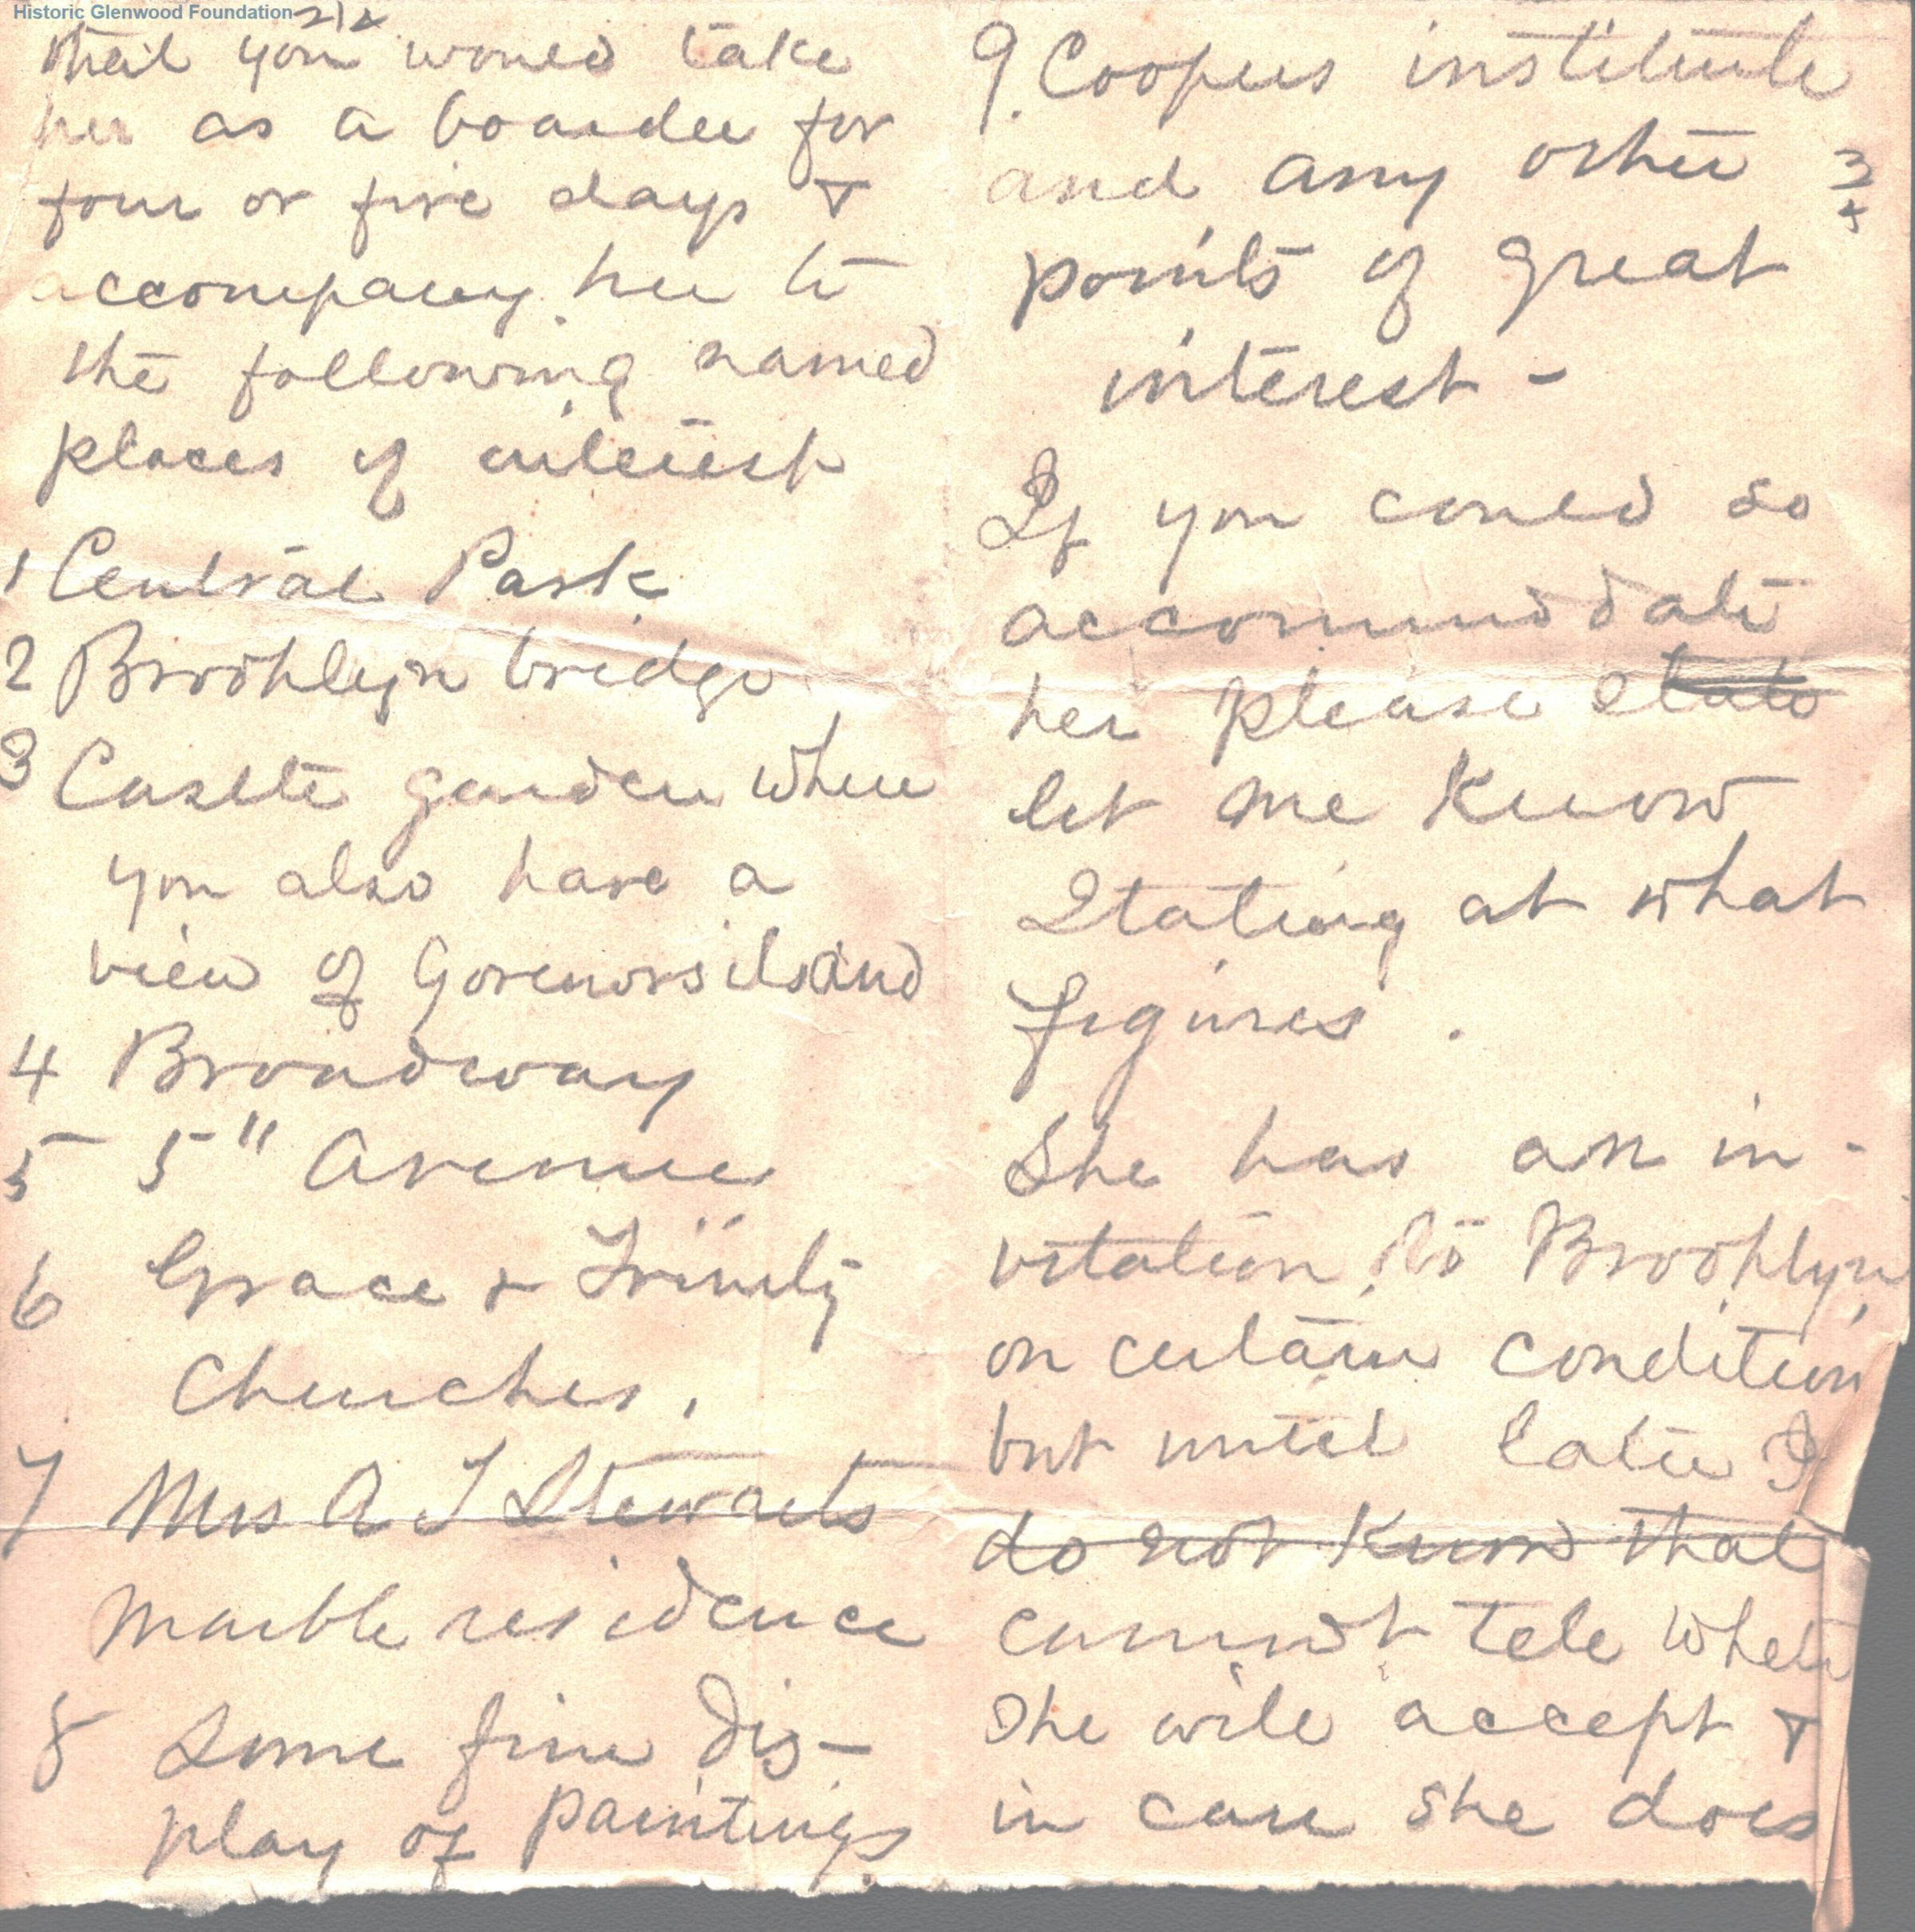 Historic Glenwood Foundation
that you would take
her as a boarder for
four or five days &
accompany her to
the following named
places of interest
1 Central Park
2 Brooklyn bridge
3 Castle garden where
you also have a
view of Govenors island
4 Broadway
5 5" Avenue
6 Grace & Trinity
Churches.
7 Mrs A T Stewarts
marble residence
8 Some fine dis-
play of paintings
9. Coopers institute
and any other
points of great
interest -
If you could so
accommodate
her please state
let me know
Stating at what
figures.
She has an in-
vitation to Brooklyn
on certain condition
but until later I
do not know that
cannot tell
she will accept &
in case she does